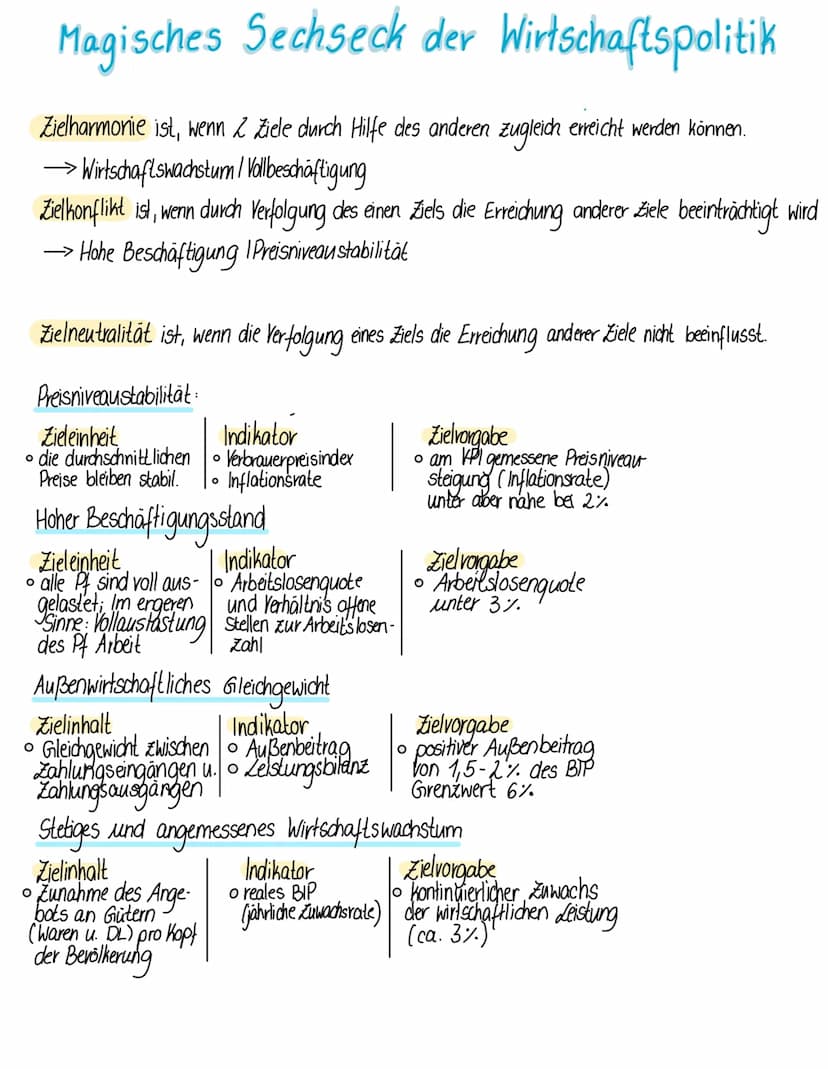 Magisches Sechseck der Wirtschaftspolitik
Zielharmonie ist, wenn 2 Ziele durch Hilfe des anderen zugleich erreicht werden können.
→ Wirtschaftswachstum / Vollbeschäftigung
Zielkonflikt ist, wenn durch Verfolgung des einen Ziels die Erreichung anderer Ziele beeinträchtigt wird
→ Hohe Beschäftigung / Preisniveaustabilität
Zielneutralität ist, wenn die Verfolgung eines Ziels die Erreichung anderer Ziele nicht beeinflusst.
Preisniveaustabilität:
Zieleinheit
• die durchschnittlichen
Preise bleiben stabil.
Indikator
• Verbrauerpreisindex
• Inflationsrate
Zielvorgabe
• am VPI gemessene Preisniveau-
steigung (Inflationsrate)
unter aber nahe bei 2%
Hoher Beschäftigungsstand
Zieleinheit
• alle Pf sind voll aus-
gelastet; Im ergeren
Sinne: Vollauslastung
des Pf Arbeit
Indikator
• Arbeitslosenquote
und Verhältnis offene
Stellen zur Arbeitslosen-
zahl
Zielvorgabe
• Arbeitslosenquote
unter 3%
Außenwirtschaftliches Gleichgewicht
Zielinhalt
• Gleichgewicht zwischen
Zahlungseingängen u.
Zahlungsausgängen
Indikator
• Außenbeitrag
• Leistungsbilanz
Zielvorgabe
• positiver Außenbeitrag
von 1,5-2% des BIP
Grenzwert 6%
Stetiges und angemessenes Wirtschaftswachstum
Zielinhalt
• Zunahme des Ange-
bots an Gütern
(Waren u. DL) pro Kopf
der Bevölkerung
Indikator
• reales BIP
(jährliche Zuwachsrate)
Zielvorgabe
• kontinuierlicher Zuwachs
der wirtschaftlichen Leistung
(ca. 3%)